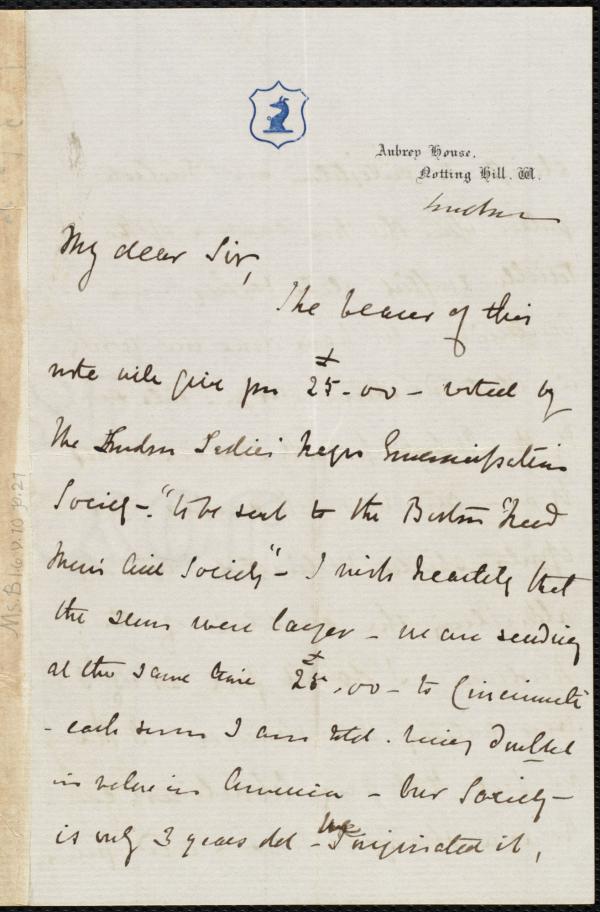 Aubrey House,
Notting Hill. W.
London
My dear Sir,
The bearer of this
note will give you £25-00 - voted by
the London Ladies' Negro Emancipation
Society - "to be sent to the Boston "Freed
men's Aid Society" - I wish heartily that
the sum were larger - we are sending
at the same time £25,00 - to Cincinnati
- each sum I am told . being doubled
in value in America - Our Society -
is only 3 years old - We originated it,
Ms.B.1.6 v.10 p.27